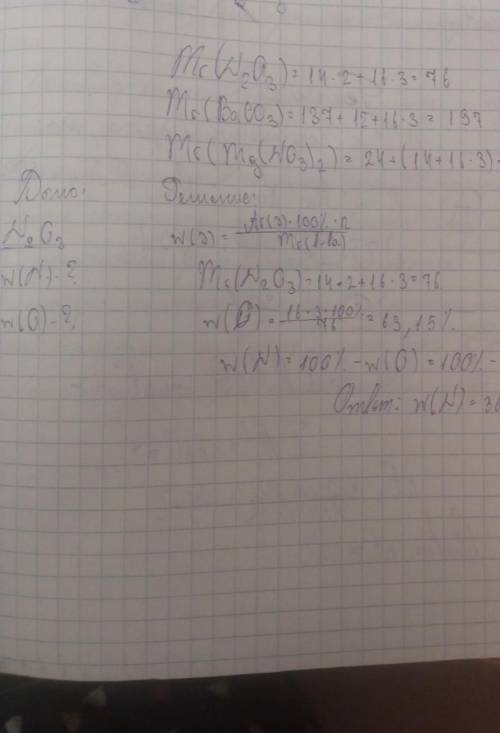 Mr(N₂O₃) = 14·2+16·3 = 76
Mr(BaCO₃) = 137+12+16·3 = 197
Mr(Mg(NO₃)₂) = 24+(14+16·3)·
Дано: Решение:
N₂O₃ w(Э) = Ar(Э)·100%·n / Mr(в-ва)
w(N)-? Mr(N₂O₃) = 14·2+16·3 = 76
w(O)-? w(O) = 16·3·100% / 76 = 63,15%
w(N) = 100% - w(O) = 100% -
Ответ: w(N) = 36